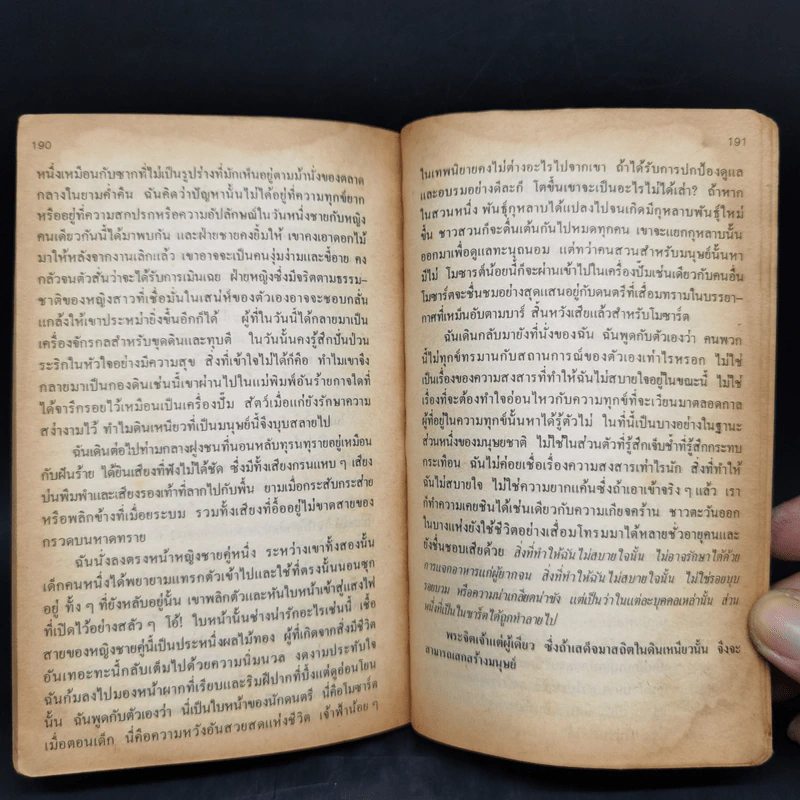 190
หนึ่งเหมือนกับซากที่ไม่เป็นรูปร่างที่มักเห็นอยู่ตามม้านั่งของตลาด
กลางในยามค่ำคืน ฉันคิดว่าปัญหานั้นไม่ได้อยู่ที่ความทุกข์ยาก
หรืออยู่ที่ความสกปรกหรือความอัปลักษณ์ในวันหนึ่งชายกับหญิง
คนเดียวกันนี้ได้มาพบกัน และฝ่ายชายคงยิ้มให้ เขาคงเอาดอกไม้
มาให้หลังจากงานเลิกแล้ว เขาอาจจะเป็นคนงุ่มง่ามและขี้อาย คง
กลัวจนตัวสั่นว่าจะได้รับการเมินเฉย ฝ่ายหญิงซึ่งมีจริตตามธรรม-
ชาติของหญิงสาวที่เชื่อมั่นในเสน่ห์ของตัวเองอาจจะชอบกลั่น
แกล้งให้เขาประหม่ายิ่งขึ้นอีกก็ได้ ผู้ที่ในวันนี้ได้กลายมาเป็น
เครื่องจักรกลสำหรับขุดดินและทุบตี ในวันนั้นคงรู้สึกปั่นป่วน
ระริกในหัวใจอย่างมีความสุข สิ่งที่เข้าใจไม่ได้ก็คือ ทำไมเขาจึง
กลายมาเป็นกองดินเช่นนี้เขาผ่านไปในแม่พิมพ์อันร้ายกาจใดที่
ได้จารึกรอยไว้เหมือนเป็นเครื่องปั๊ม สัตว์เมื่อแก่ยังรักษาความ
สง่างามไว้ ทำไมดินเหนียวที่เป็นมนุษย์นี้จึงบุบสลายไป
ฉันเดินต่อไปท่ามกลางฝูงชนที่นอนหลับทุรนทุรายอยู่เหมือน
กับฝันร้าย ได้ยินเสียงที่ฟังไม่ได้ชัด ซึ่งมีทั้งเสียงกรนแหบ ๆ เสียง
บ่นพึมพำและเสียงรองเท้าที่ลากไปกับพื้น ยามเมื่อกระสับกระส่าย
หรือพลิกข้างที่เมื่อยระบม รวมทั้งเสียงที่อื้ออยู่ไม่ขาดสายของ
กรวดบนหาดทราย
ฉันนั่งลงตรงหน้าหญิงชายคู่หนึ่ง ระหว่างเขาทั้งสองนั้น
เด็กคนหนึ่งได้พยายามแทรกตัวเข้าไปและใช้ที่ตรงนั้นนอนซุก
อยู่ ทั้ง ๆ ที่ยังหลับอยู่นั้น เขาพลิกตัวและหันใบหน้าเข้าสู่แสงไฟ
ที่เปิดไว้อย่างสลัว ๆ โอ้! ใบหน้านั้นช่างน่ารักอะไรเช่นนี้ เชื้อ
สายของหญิงชายคู่นี้เป็นประหนึ่งผลไม้ทอง ผู้ที่เกิดจากสิ่งมีชีวิต
อันเทอะทะนี้กลับเต็มไปด้วยความนิ่มนวล งดงามประทับใจ
ฉันก้มลงไปมองหน้าผากที่เรียบและริมฝีปากที่ปิ้งแต่ดูอ่อนโยน
นั้น ฉันพูดกับตัวเองว่า นี่เป็นใบหน้าของนักดนตรี นี่คือโมซาร์ต
เมื่อตอนเด็ก นี่คือความหวังอันสวยสดแห่งชีวิต เจ้าฟ้าน้อย ๆ
191
ในเทพนิยายคงไม่ต่างอะไรไปจากเขา ถ้าได้รับการปกป้องดูแล
และอบรมอย่างดีละก็ โตขึ้นเขาจะเป็นอะไรไม่ได้เล่า? ถ้าหาก
ในสวนหนึ่ง พันธุ์กุหลาบได้แปลงไปจนเกิดมีกุหลาบพันธุ์ใหม่
ขึ้น ชาวสวนก็จะตื่นเต้นกันไปหมดทุกคน เขาจะแยกกุหลาบนั้น
ออกมาเพื่อดูแลทะนุถนอม แต่ทว่าคนสวนสำหรับมนุษย์นั้นหา
มีไม่ โมซาร์ตน้อยนี้ก็จะผ่านเข้าไปในเครื่องปั๊มเช่นเดียวกับคนอื่น
โมซาร์ตจะชื่นชมอย่างสุดแสนอยู่กับดนตรีที่เสื่อมทรามในบรรยา-
กาศที่เหม็นอับตามบาร์ สิ้นหวังเสียแล้วสำหรับโมซาร์ต
ฉันเดินกลับมายังที่นั่งของฉัน ฉันพูดกับตัวเองว่า คนพวก
นี้ไม่ทุกข์ทรมานกับสถานการณ์ของตัวเองเท่าไรหรอก ไม่ใช่
เป็นเรื่องของความสงสารที่ทำให้ฉันไม่สบายใจอยู่ในขณะนี้ ไม่ใช่
เรื่องที่จะต้องทำใจอ่อนไหวกับความทุกข์ที่จะเวียนมาตลอดกาล
ผู้ที่อยู่ในความทุกข์นั้นหาได้รู้ตัวไม่ ในที่นี้เป็นบางอย่างในฐานะ
ส่วนหนึ่งของมนุษยชาติ ไม่ใช่ในส่วนตัวที่รู้สึกเจ็บช้ำที่รู้สึกกระทบ
กระเทือน ฉันไม่ค่อยเชื่อเรื่องความสงสารเท่าไรนัก สิ่งที่ทำให้
ฉันไม่สบายใจ ไม่ใช่ความยากแค้นซึ่งถ้าเอาเข้าจริง ๆ แล้ว เรา
ก็ทำความเคยชินได้เช่นเดียวกับความเกียจคร้าน ชาวตะวันออก
ในบางแห่งยังใช้ชีวิตอย่างเสื่อมโทรมมาได้หลายชั่วอายุคนและ
ยังชื่นชอบเสียด้วย สิ่งที่ทำให้ฉันไม่สบายใจนั้น ไม่อาจรักษาได้ด้วย
การแจกอาหารแก่ผู้ยากจน สิ่งที่ทำให้ฉันไม่สบายใจนั้น ไม่ใช่รอยบุบ
รอยขบม หรือความน่าเกลียดน่าชัง แต่เป็นว่าในแต่ละบุคคลเหล่านั้น ส่วน
หนึ่งที่เป็นโมซาร์ตได้ถูกทำลายไป
พระจิตเจ้าแต่ผู้เดียว ซึ่งถ้าเสด็จมาสถิตในดินเหนียวนั้น จึงจะ
สามารถเสกสร้างมนุษย์